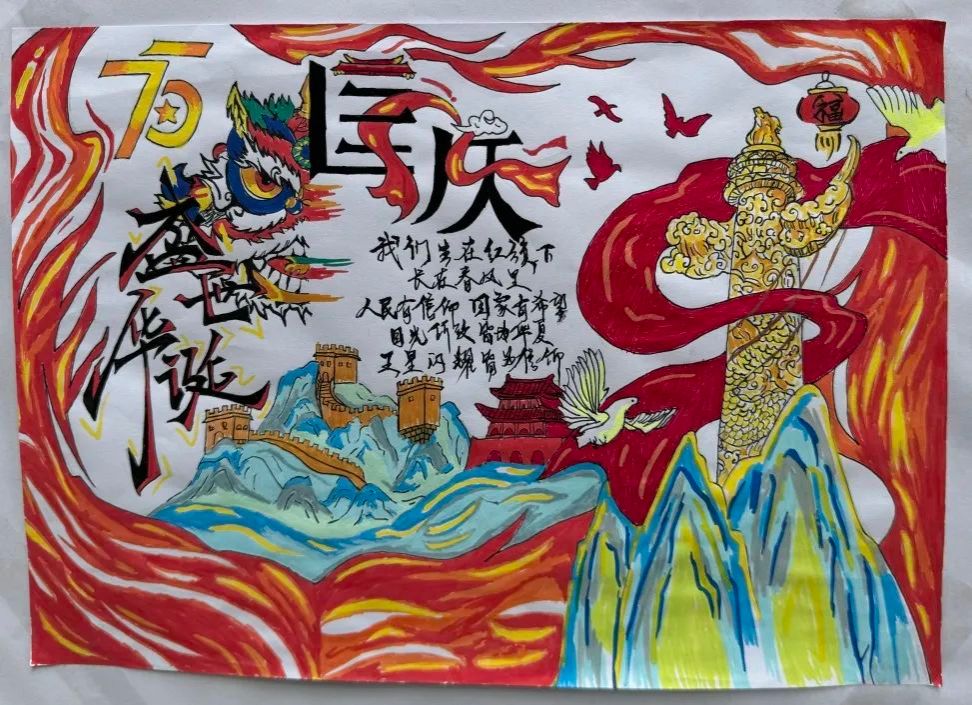 75
国庆
盛世华诞
福
我们生在红旗下
长在春风里
人民有信仰 国家有希望
目光所致 皆为华夏
五星闪耀 皆为信仰